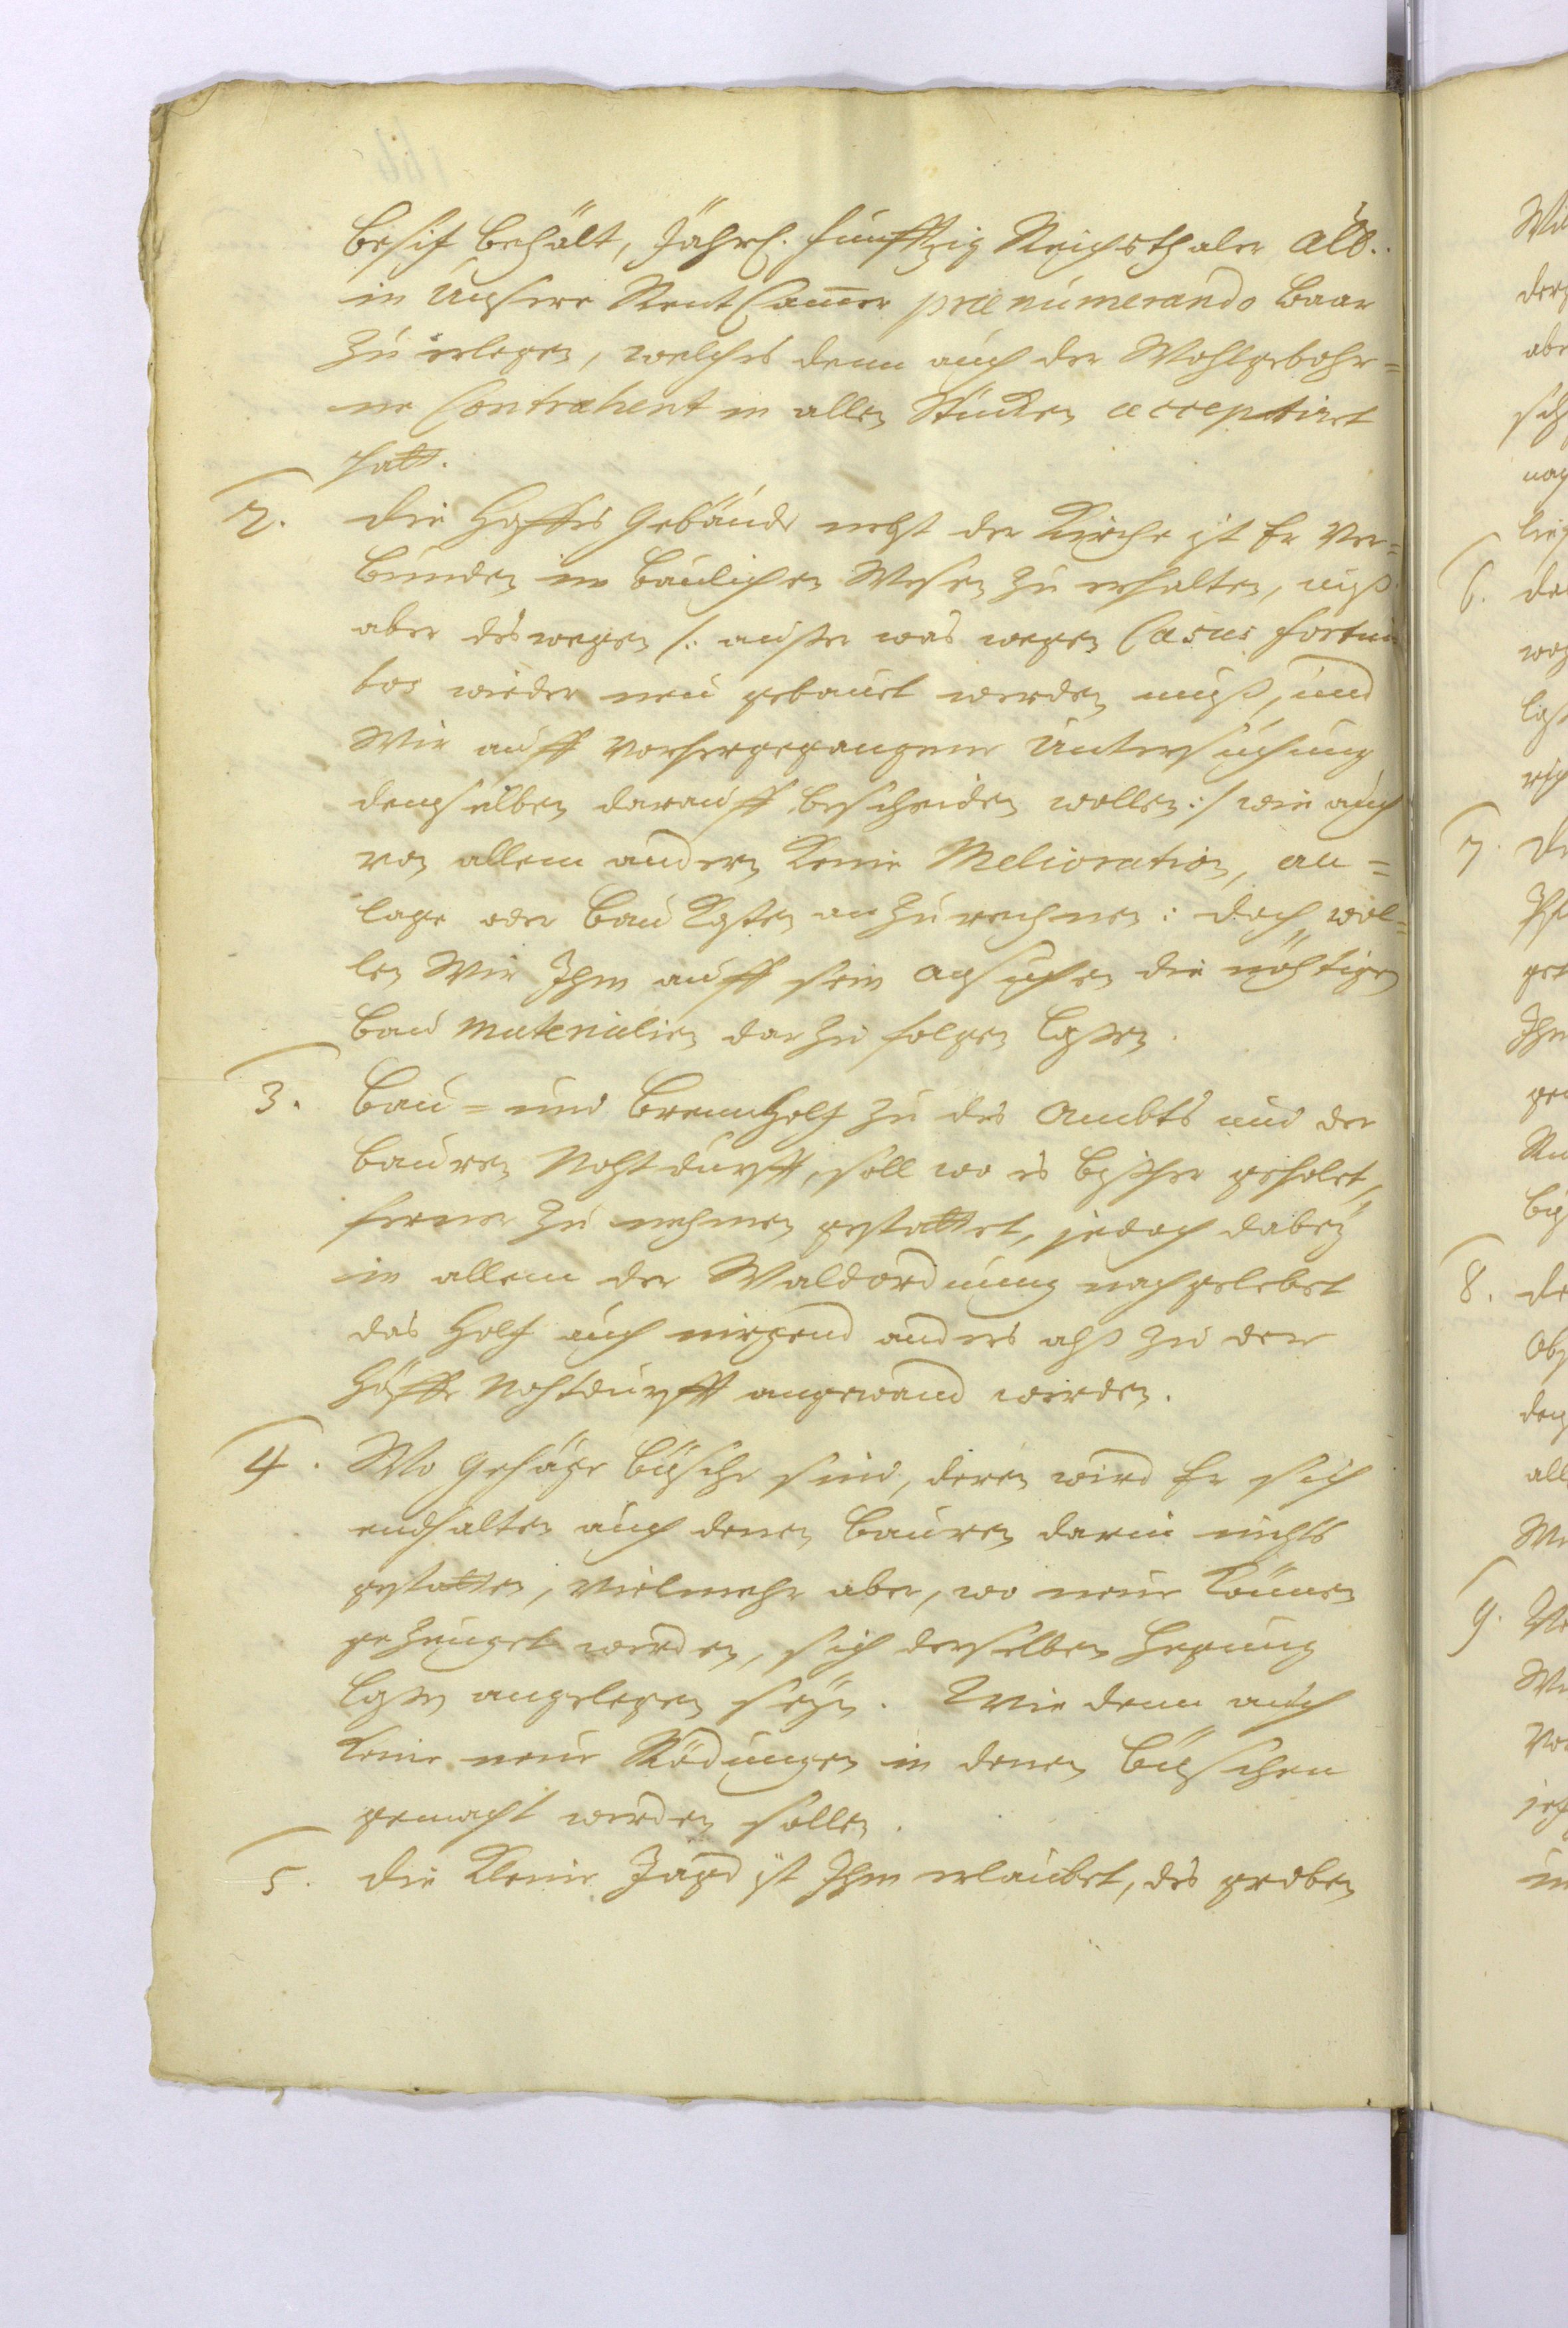 besitz behält, Jährl. fünfftzig Reichsthaler Alb.
in Unsere Rent Cammer prænumerando baar
zu erlegen, welches denn auch der Wohlgebohr=
ne Contrahent in allen Stücken acceptiret
hatt.
2. Die Hoffes Gebäude nebst der Kirche ist Er ver=
bunden im baulichen Wesen zu erhalten, nichts
aber deswegen /: außer was wegen Casus fortui
tos wieder neu gebauet werden muß, und
Wir auff vorhergegangene Untersuchung
denselben darauff bescheiden wollen :/ wie auch
von allem andern keine Melioration, an=
lage oder bau Kosten anzurechnen: doch wol=
len Wir Ihm auff sein ansuchen die nöhtigen
bau materialien darzu folgen laßen.
3. Bau= und brennholtz zu des Ambts und der
bauren Nohtdurfft, soll wo es bißher geholet,
ferner zu nehmen gestattet, jedoch dabeÿ
in allem der Waldordnung nachgelebet
das Holtz auch nirgend anders alß zu der
Höffe Nohtdurfft angewand werden.
4. Wo Gehäge büsche sind, deren wird Er sich
endhalten auch denen bauren darin nichts
gestatten, vielmehr aber, wo neue können
gezeuget werden, sich derselben Hegung
laßen angelegen seÿn. Wie denn auch
keine neue Rödungen in denen büschen
gemacht werden sollen.
5. Die kleine Jagd ist Ihm erlaubet, des groben